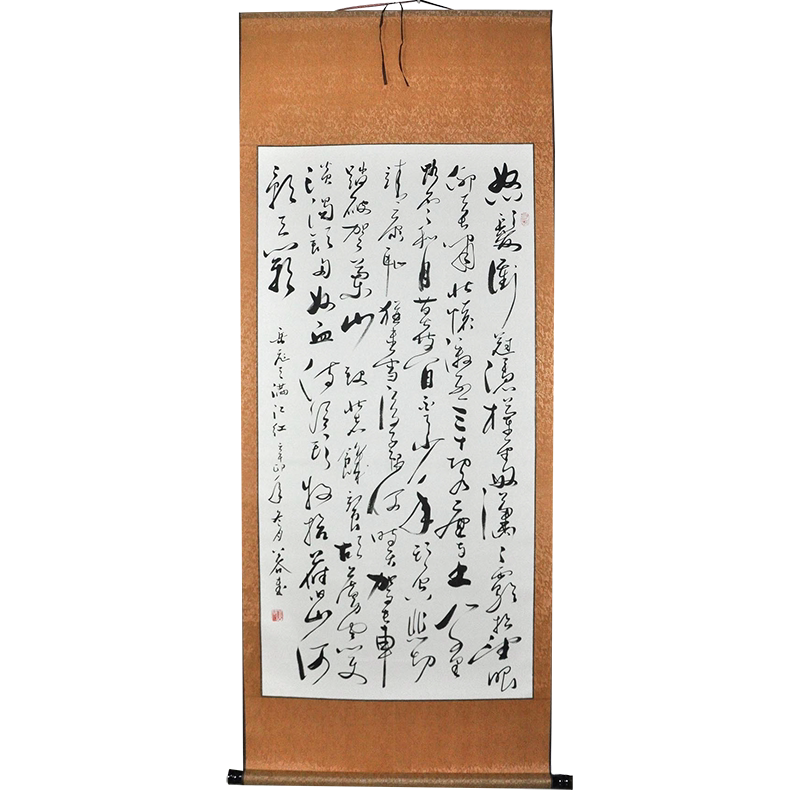 怒髮衝冠憑欄處瀟瀟雨歇抬望眼
仰天長嘯壯懷激烈三十功名塵與土八千里
路雲和月莫等閒白了少年頭空悲切
靖康恥猶未雪臣子恨何時滅駕長車
踏破賀蘭山缺壯志飢餐胡虜肉笑
談渴飲匈奴血待從頭收拾舊山河
朝天闕
岳飛之滿江紅 辛卯年冬月 書